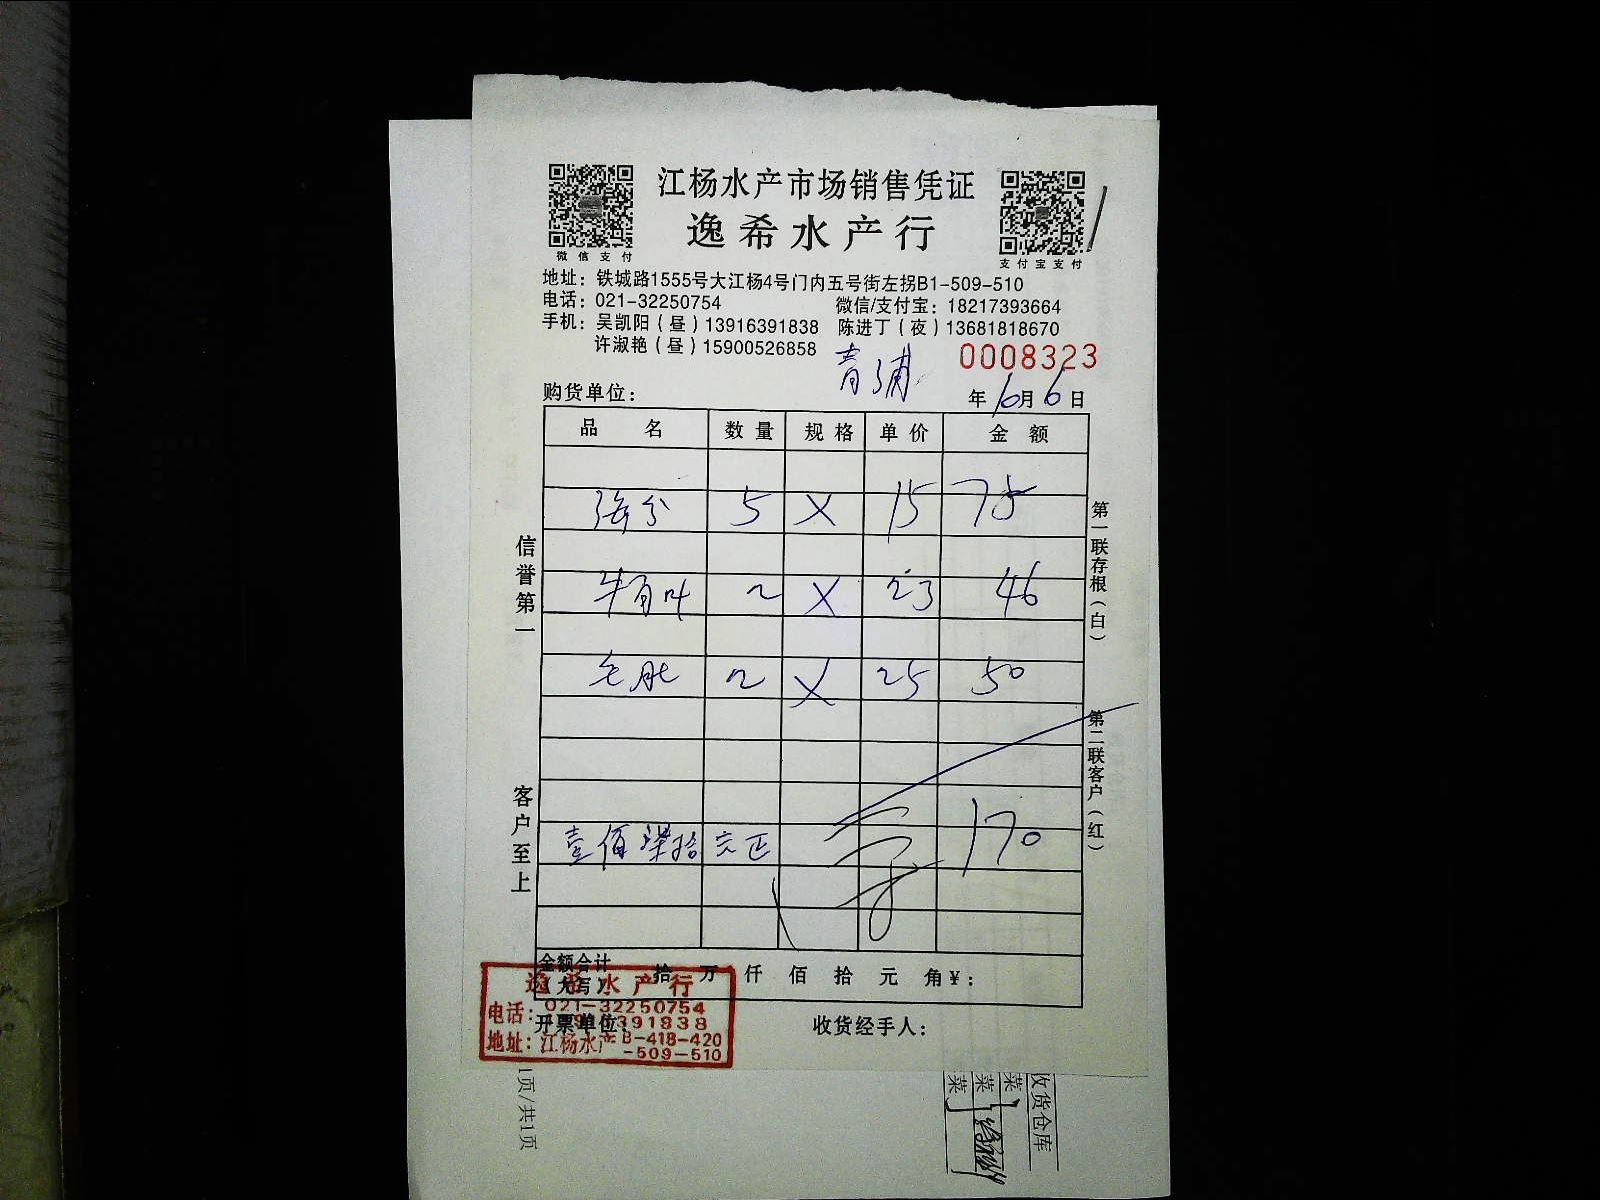 江杨水产市场销售凭证
逸希水产行
微信支付
支付宝支付
地址：铁城路1555号大江杨4号门内五号街左拐B1-509-510
电话：021-32250754 微信/支付宝：18217393664
手机：吴凯阳（昼）13916391838 陈进丁（夜）13681818670
许淑艳（昼）15900526858
青浦
0008323
购货单位： 年 6月 6日
品名 数量 规格 单价 金额
5 X 15 75
牛百叶 2 X 23 46
毛肚 2 X 25 50
170
壹佰柒拾元正
金额合计（大写） 拾 万 仟 佰 拾 元 角 ¥：
开票单位： 收货经手人：
信誉第一
客户至上
第一联存根（白）
第二联客户（红）
逸希水产行
电话：021-32250754
391838
地址：江杨水产B-418-420
-509-510
1页/共1页
收货仓库
菜
菜
菜